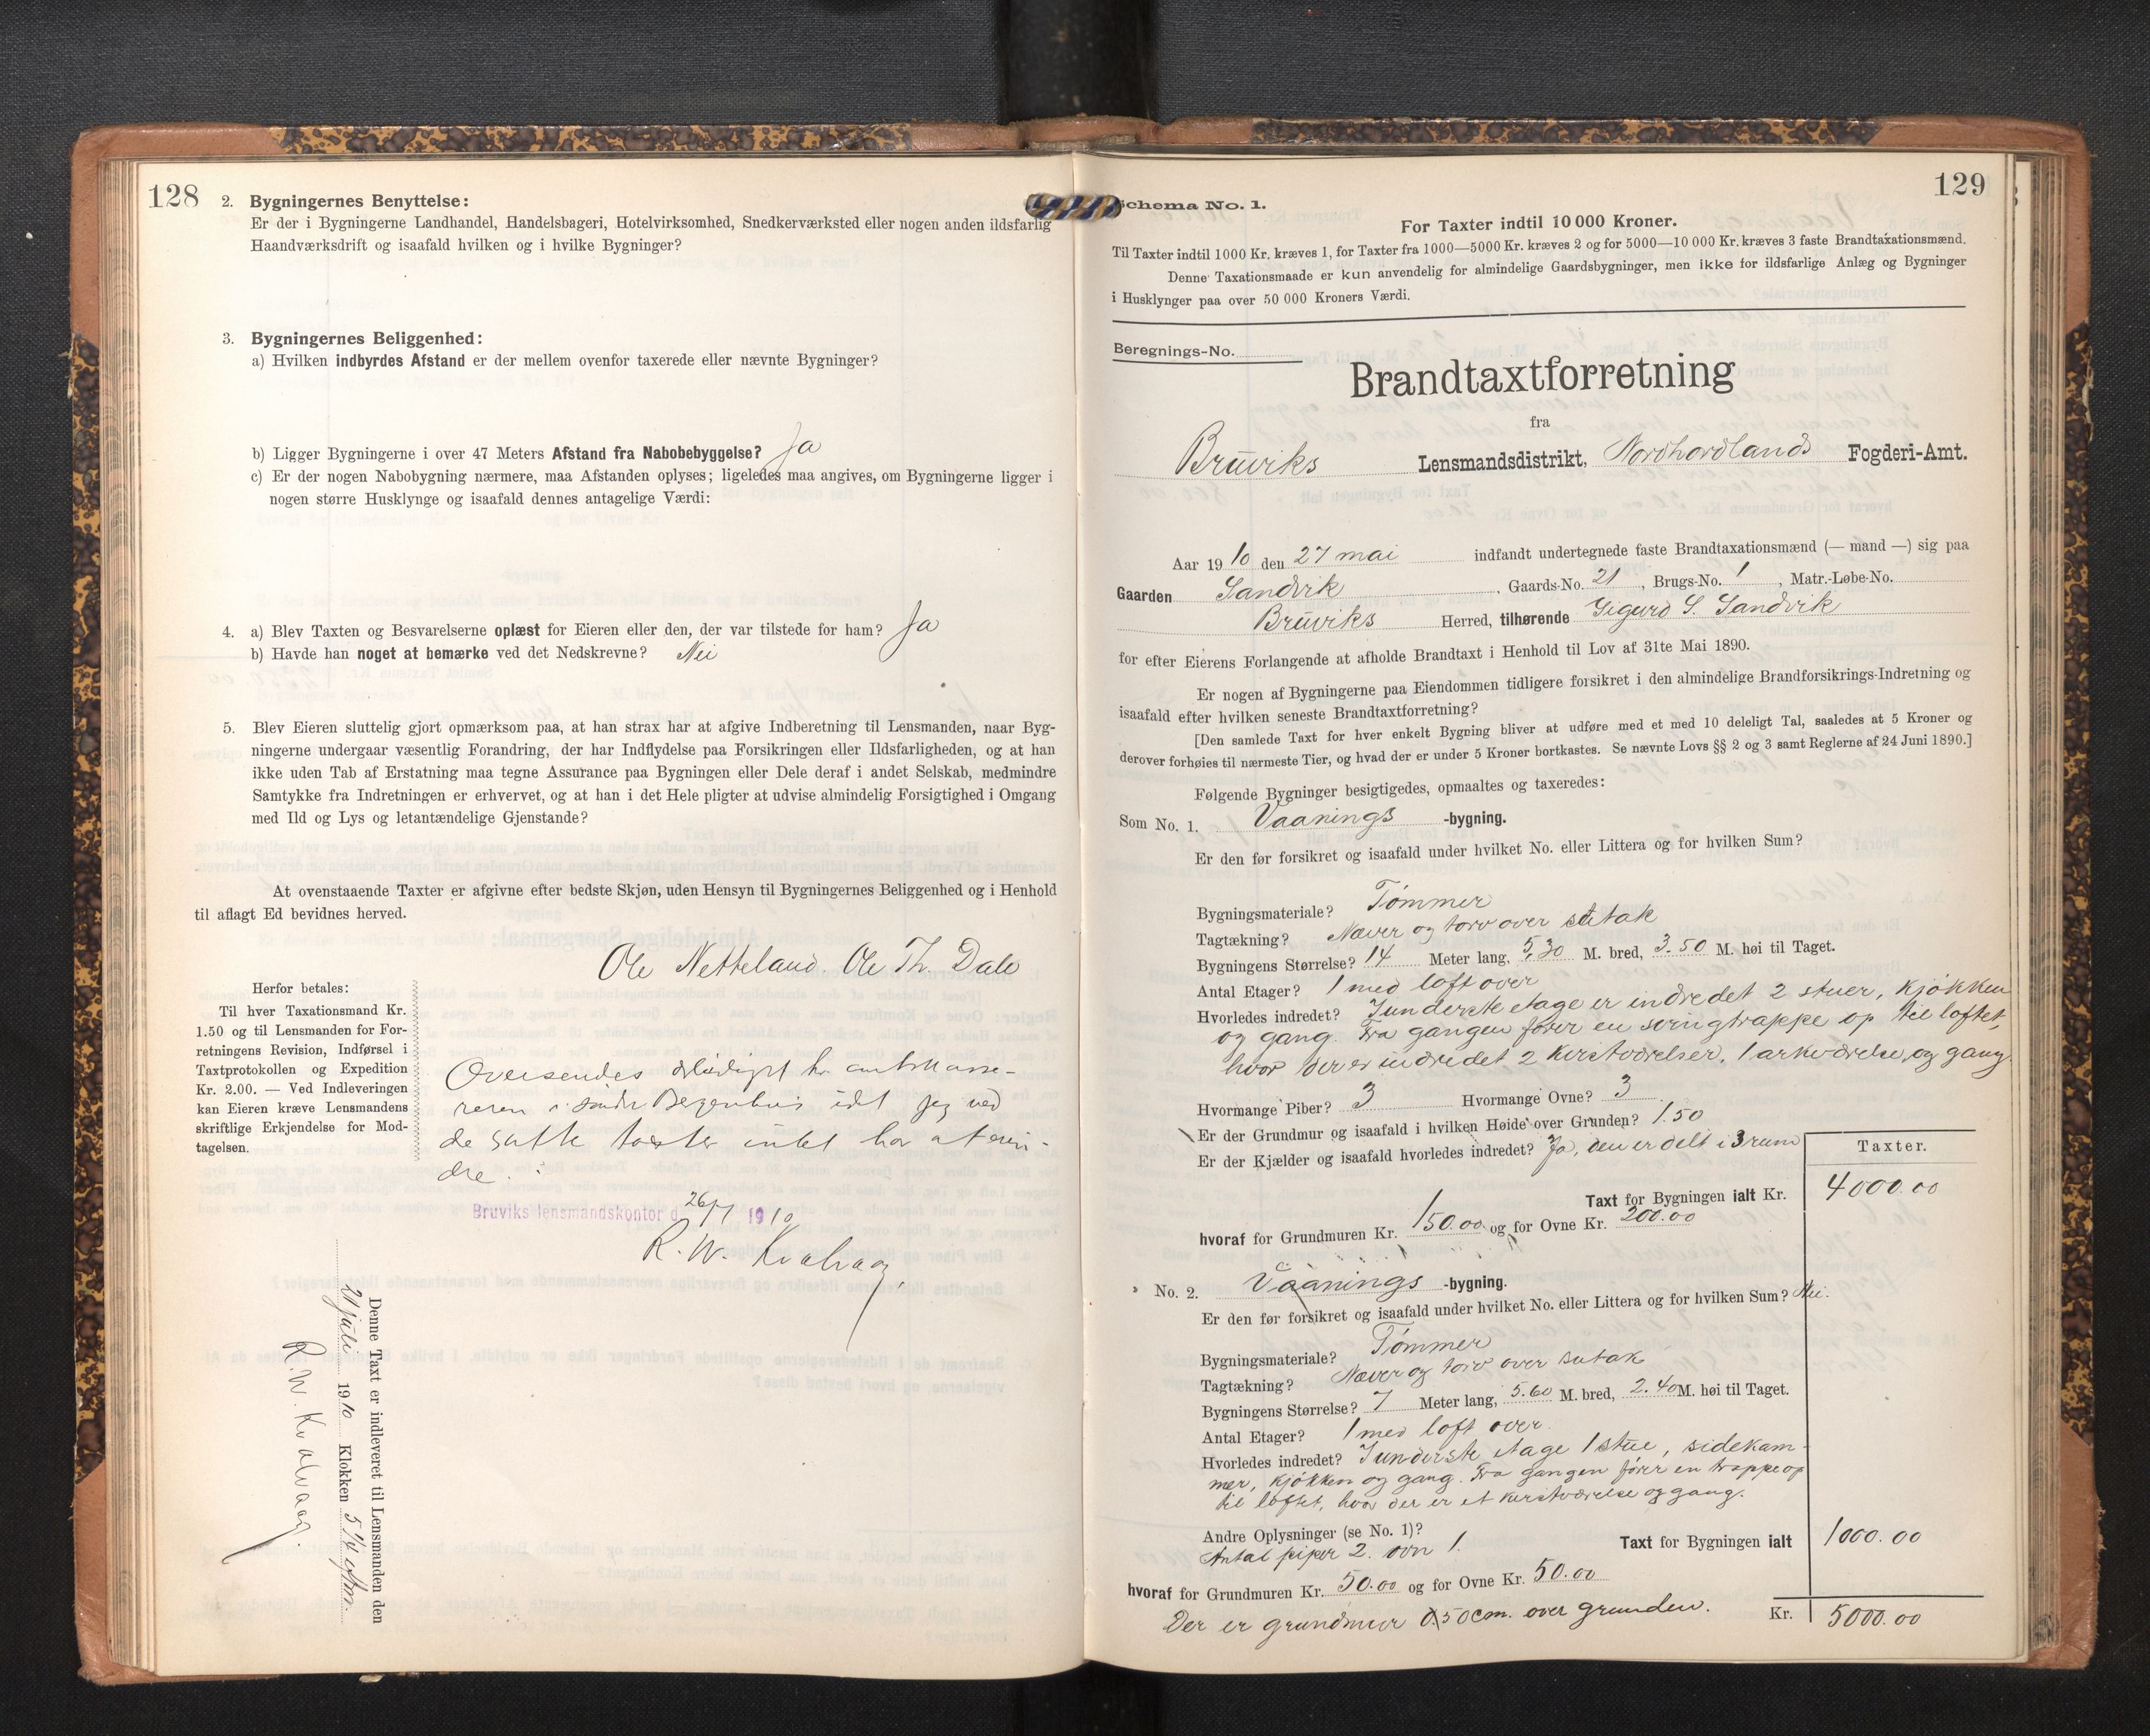 128
2. Bygningernes Benyttelse:
Er der i Bygningerne Landhandel, Handelsbageri, Hotelvirksomhed, Snedkerværksted eller nogen anden ildsfarlig
Haandværksdrift og isaafald hvilken og i hvilke Bygninger?
3. Bygningernes Beliggenhed:
a) Hvilken indbyrdes Afstand er der mellem ovenfor taxerede eller nævnte Bygninger?
b) Ligger Bygningerne i over 47 Meters Afstand fra Nabobebyggelse? Ja
c) Er der nogen Nabobygning nærmere, maa Afstanden oplyses; ligeledes maa angives, om Bygningerne ligger i
nogen større Husklynge og isaafald dennes antagelige Værdi:
4. a) Blev Taxten og Besvarelserne oplæst for Eieren eller den, der var tilstede for ham? Ja
b) Havde han noget at bemærke ved det Nedskrevne? Nei
5. Blev Eieren sluttelig gjort opmærksom paa, at han strax har at afgive Indberetning til Lensmanden, naar Byg-
ningerne undergaar væsentlig Forandring, der har Indflydelse paa Forsikringen eller Ildsfarligheden, og at han
ikke uden Tab af Erstatning maa tegne Assurance paa Bygningen eller Dele deraf i andet Selskab, medmindre
Samtykke fra Indretningen er erhvervet, og at han i det Hele pligter at udvise almindelig Forsigtighed i Omgang
med Ild og Lys og letantændelige Gjenstande?
At ovenstaaende Taxter er afgivne efter bedste Skjøn, uden Hensyn til Bygningernes Beliggenhed og i Henhold
til aflagt Ed bevidnes herved.
Ole Netteland. Ole Th. Dale
Herfor betales:
Til hver Taxationsmand Kr.
1.50 og til Lensmanden for For-
retningens Revision, Indførsel i
Taxtprotokollen og Expedition
Kr. 2.00. — Ved Indleveringen
kan Eieren kræve Lensmandens
skriftlige Erkjendelse for Mod-
tagelsen.
Oversendes hr. amtskasse-
reren i Søndre Bergenhus idet jeg ved
de satte taxter intet har at erin-
dre.
Bruviks lensmandskontor d 26/7 1910
R. W. Kvalvaag
Denne Taxt er indleveret til Lensmanden den
21 juli 1910 Klokken 5 1/4
R. W. Kvalvaag
129
Schema No. 1.
For Taxter indtil 10 000 Kroner.
Til Taxter indtil 1000 Kr. kræves 1, for Taxter fra 1000—5000 Kr. kræves 2 og for 5000—10 000 Kr. kræves 3 faste Brandtaxationsmænd.
Denne Taxationsmaade er kun anvendelig for almindelige Gaardsbygninger, men ikke for ildsfarlige Anlæg og Bygninger
i Husklynger paa over 50 000 Kroners Værdi.
Beregnings-No.
Brandtaxtforretning
fra
Bruviks Lensmandsdistrikt, Nordhordlands Fogderi-Amt.
Aar 1910 den 27 mai indfandt undertegnede faste Brandtaxationsmænd (— mand —) sig paa
Gaarden Sandvik, Gaards-No. 21, Brugs-No. 1, Matr.-Løbe-No.
Bruviks Herred, tilhørende Sigurd S. Sandvik
for efter Eierens Forlangende at afholde Brandtaxt i Henhold til Lov af 31te Mai 1890.
Er nogen af Bygningerne paa Eiendommen tidligere forsikret i den almindelige Brandforsikrings-Indretning og
isaafald efter hvilken seneste Brandtaxtforretning?
[Den samlede Taxt for hver enkelt Bygning bliver at udføre med et med 10 deleligt Tal, saaledes at 5 Kroner og
derover forhøies til nærmeste Tier, og hvad der er under 5 Kroner bortkastes. Se nævnte Lovs §§ 2 og 3 samt Reglerne af 24 Juni 1890.]
Følgende Bygninger besigtigedes, opmaaltes og taxeredes:
Som No. 1. Vaanings -bygning.
Er den før forsikret og isaafald under hvilket No. eller Littera og for hvilken Sum?
Bygningsmateriale? Tømmer
Tagtækning? Næver og torv over sutak
Bygningens Størrelse? 14 Meter lang, 5,30 M. bred, 3.50 M. høi til Taget.
Antal Etager? 1 med loft over
Hvorledes indredet? I underste etage er indredet 2 stuer, kjøkken
og gang. Fra gangen fører en svingtrappe op til loftet,
hvor der er indredet 2 kvistværelser, 1 arkværelse og gang
Hvormange Piber? 3 Hvormange Ovne? 3
Er der Grundmur og isaafald i hvilken Høide over Grunden? 1.50
Er der Kjælder og isaafald hvorledes indredet? Ja, den er delt i 3 rum
Taxter.
Taxt for Bygningen ialt Kr. 4000.00
hvoraf for Grundmuren Kr. 150.00 og for Ovne Kr. 200.00
No. 2. Vaanings -bygning.
Er den før forsikret og isaafald under hvilket No. eller Littera og for hvilken Sum? Nei.
Bygningsmateriale? Tømmer
Tagtækning? Næver og torv over sutak
Bygningens Størrelse? 7 Meter lang, 5.60 M. bred, 2.40 M. høi til Taget.
Antal Etager? 1 med loft over.
Hvorledes indredet? I underste etage 1 stue, sidekam-
mer, kjøkken og gang. Fra gangen fører en trappe op
til loftet, hvor der er et kvistværelse og gang.
Andre Oplysninger (se No. 1)?
Antal piper 2. ovn 1.
Taxt for Bygningen ialt 1000.00
hvoraf for Grundmuren Kr. 50.00 og for Ovne Kr. 50.00
Der er grundmur 0.50 cm. over grunden. Kr. 5000.00